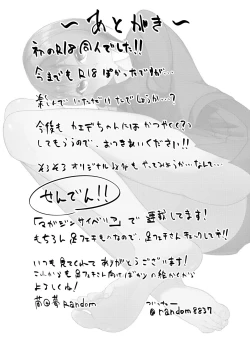 ～あとがき～
初のR18同人でした!!
今までもR18ばかったですが…
楽しんでいただけたでしょうか…?
今後もカエデちゃんにはかつやく(?)
してもらうので、おつきあいください!!
そろそろオリジナル以外もやってみようか…なんて…
せんでん!!
「マガジンサイベリア」で連載してます!
もちろん足フェチものなので、足フェチさんチェックして下!!
いつも見てくれてありがとうございます!
これからも足フェチさん向けばかりの絵かくから
よろしくね!
Random
ついったー
@random8837